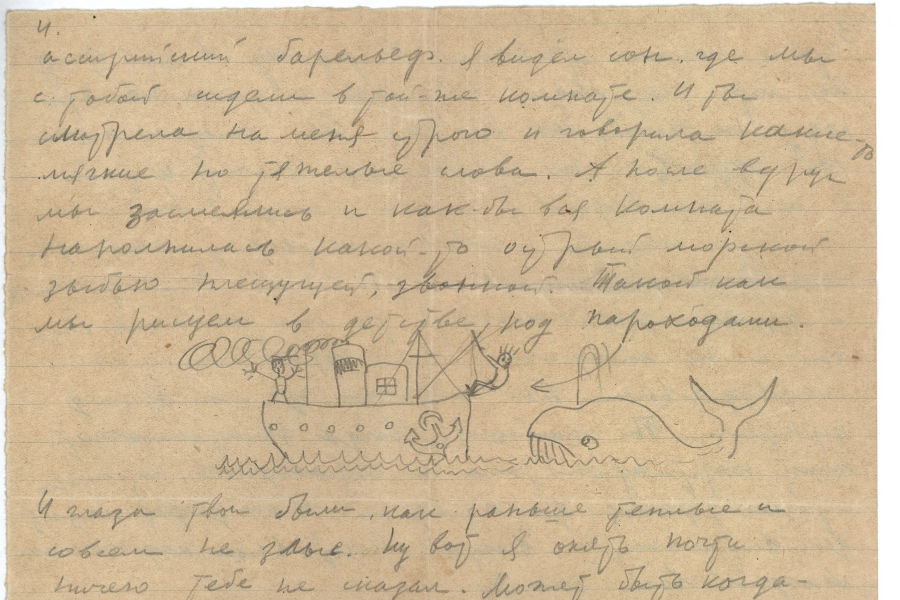 4.
ассирийский барельеф. Я видел сон. где мы
с тобой сидели в той-же комнате. И ты
смотрела на меня строго и говорила какие-то
мягкие но тяжелые слова. А после вдруг
мы засмеялись и как-бы вся комната
наполнилась какой-то острый морской
зыбью плещущей, звонкой. Такой как
мы рисуем в детстве под пароходами.
И глаза твои были, как раньше теплые и
совсем не злые. Ну вот я опять почти
ничего тебе не сказал. Может быть когда-